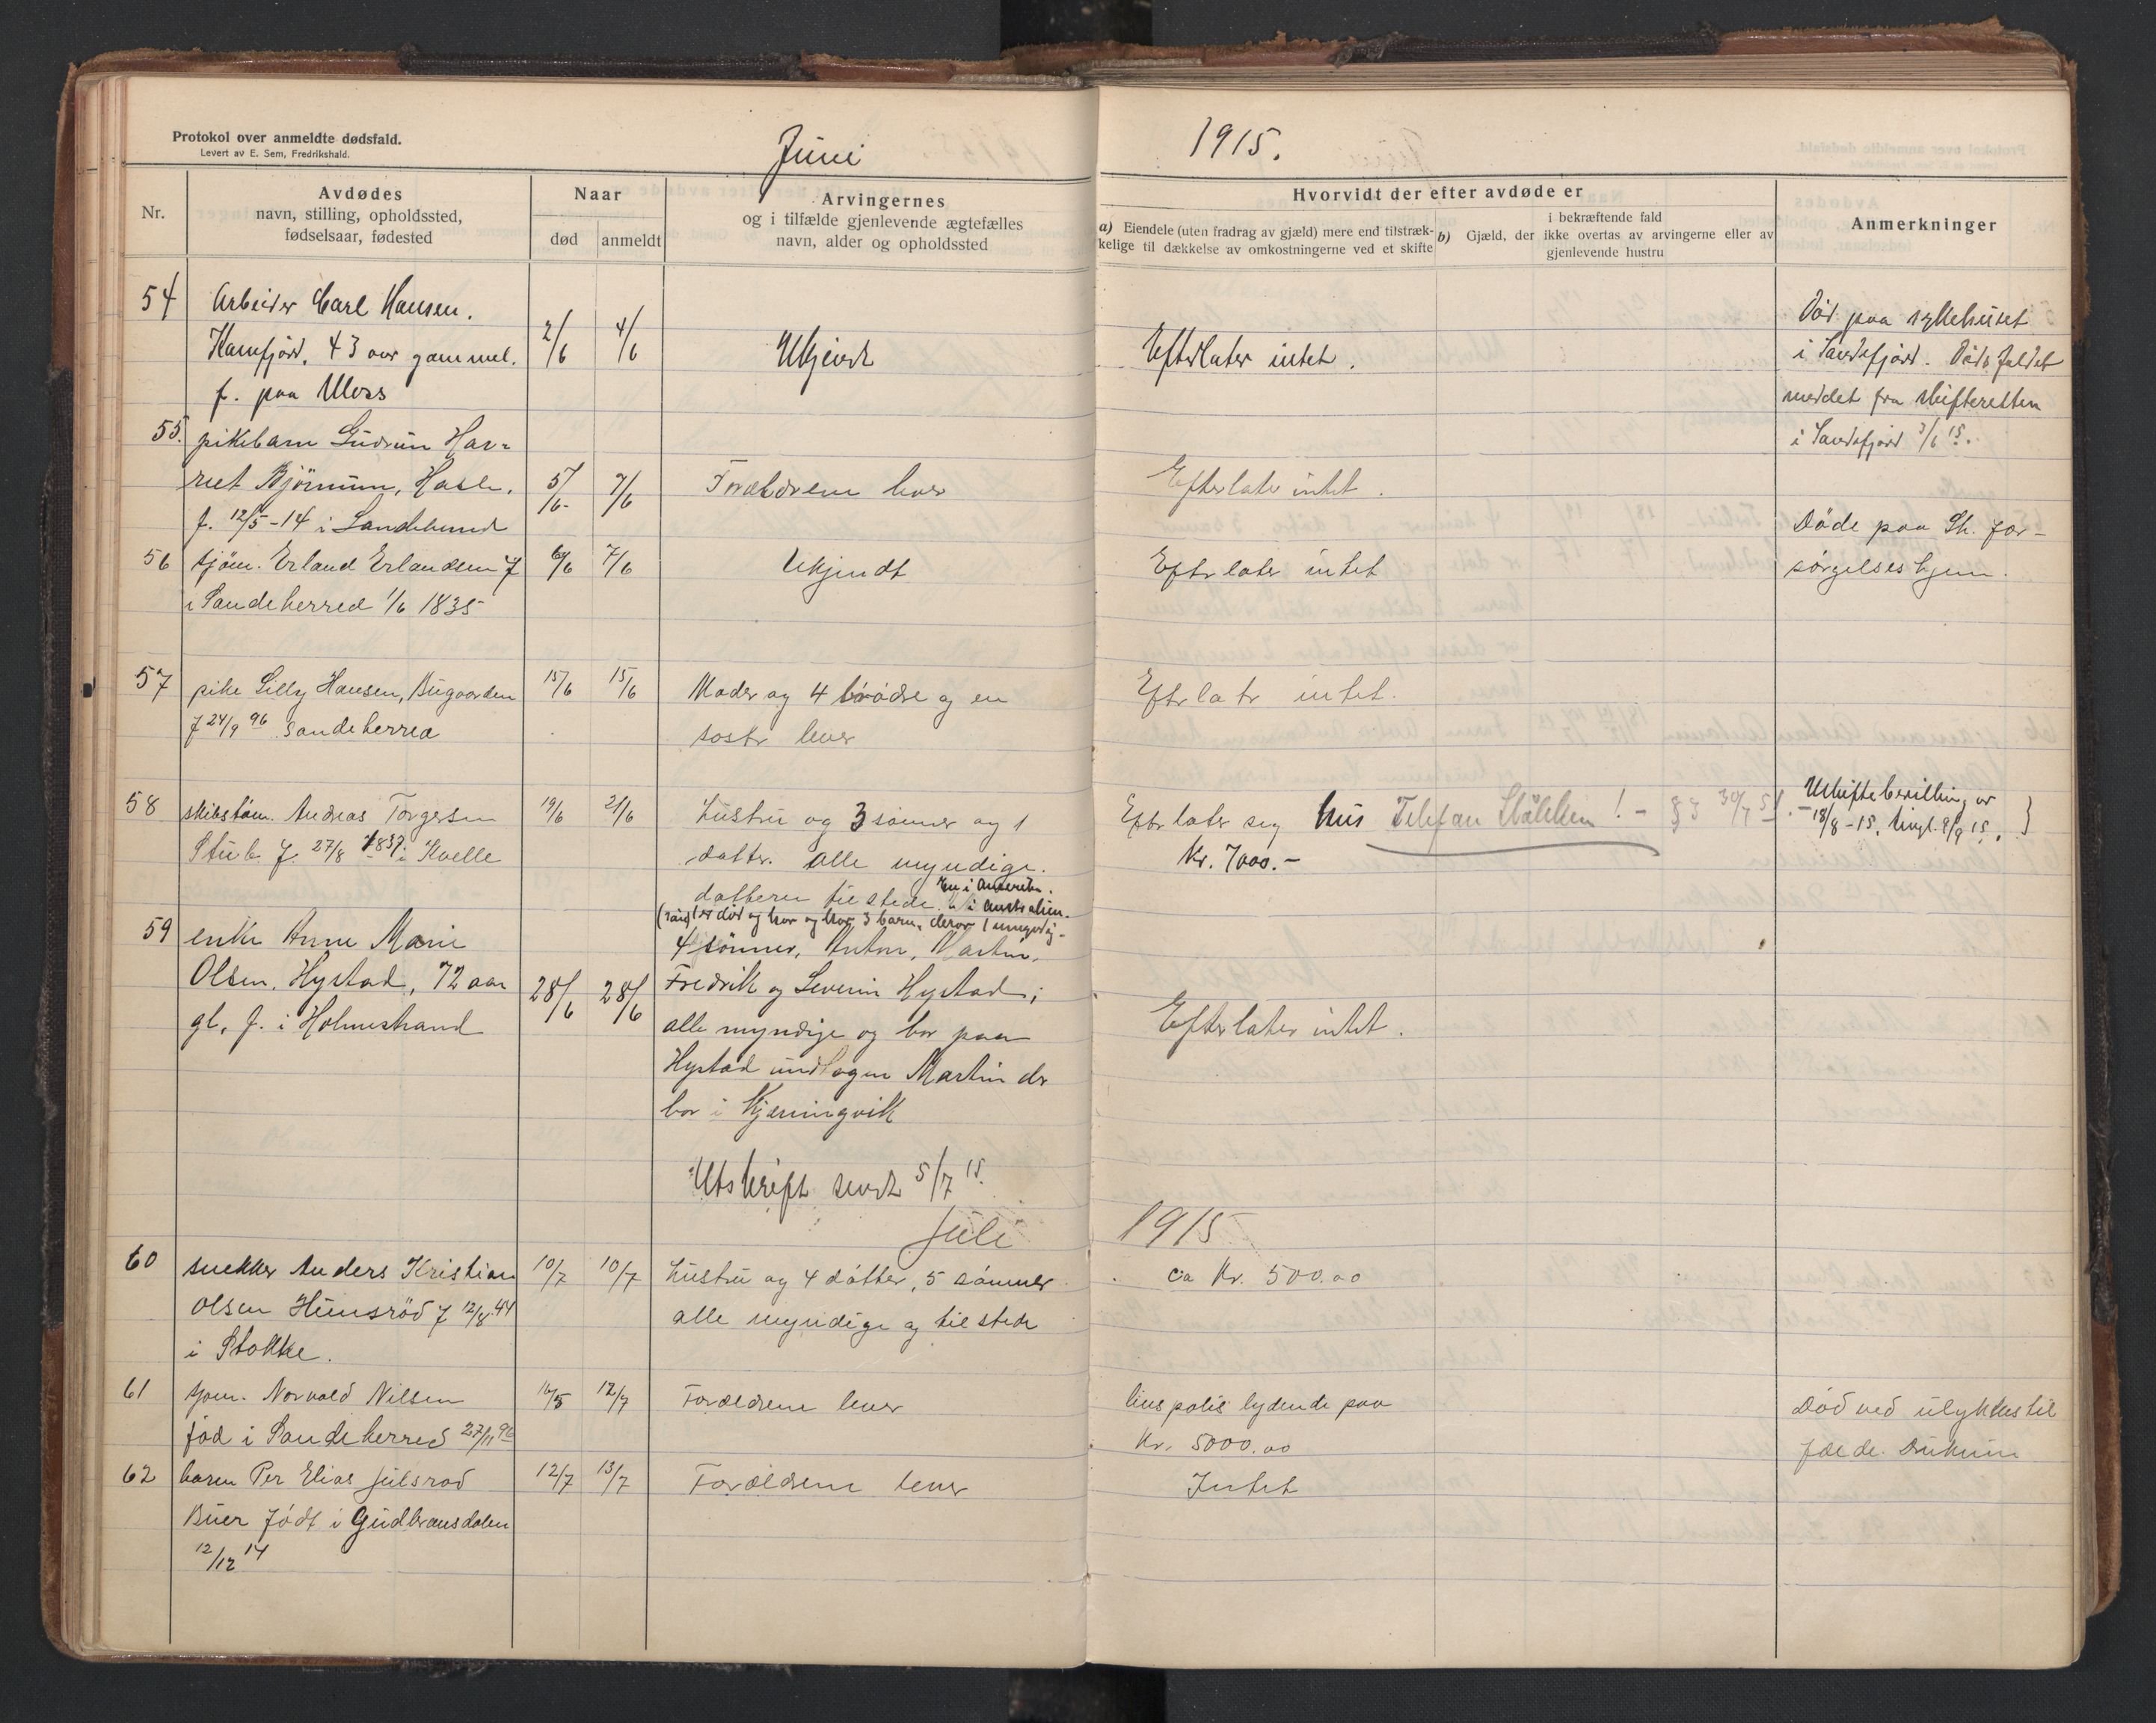 Protokol over anmeldte dødsfald.
Levert av E. Sem, Fredrikshald.
Juni
1915.
Nr.
Avdødes
navn, stilling, opholdssted,
fødselsaar, fødested
Naar
død
anmeldt
Arvingernes
og i tilfælde gjenlevende ægtefælles
navn, alder og opholdssted
Hvorvidt der efter avdøde er
a) Eiendele (uten fradrag av gjæld) mere end tilstræk-
kelige til dækkelse av omkostningerne ved et skifte
b) Gjæld, der
i bekræftende fald
ikke overtas av arvingerne eller av
gjenlevende hustru
Anmerkninger
54
Arbeider Carl Hansen.
Kamfjord, 43 aar gammel.
f. paa Moss
2/6
4/6
Ukjendt
Efterlater intet.
Död paa sykehuset
i Sandefjord. Dödsfaldet
meldet fra skifteretten
i Sandefjord 3/6 15.
55.
pikebarn Gudrun Har-
riet Bjørnum, Hasle.
f. 12/5-14 i Sandelund
5/6-
7/6
Forældrene lever
Efterlater intet.
56
sjöm. Erland Erlandsen f
i Sandeherred 1/6 1835
6/6
7/6
Ukjendt
Efterlater intet
Döde paa Sh. for-
sörgelseshjem.
57
pike Lilly Hansen, Bugaarden
f 24/9 96 Sandeherred
15/6
15/6
Moder og 4 brödre og en
soster lever
Efterlater intet.
58
skibstöm. Andreas Torgersen
Stub. f. 27/8 1837 i Kvelle
19/6
21/6
Hustru og 3 sönner og 1
datter. alle myndige.
datteren tilstede. En i Amerika.
1 i Australien.
1 er död og har 3 barn, derav 1 umyndig.
Efterlater sig hus
Kr. 7000.-
Uskiftebevilling av
18/8-15. tingl. 9/9 15.
59
enke Anne Marie
Olsen, Hystad, 72 aar
gl. f. i Holmestrand
28/6
28/6
4 sönner, Anton, Martin,
Fredrik og Severin Hystad;
alle myndige og bor paa
Hystad undtagen Martin der
bor i Kjæringvik
Efterlater intet.
Utskrift sendt 5/7 15.
Juli
1915
60
snekker Anders Kristian
Olsen Hunsröd f 12/8 44
i Stokke.
10/7
10/7
Hustru og 4 dötter, 5 sönner
alle myndige og tilstede
ca Kr. 500.00
61
sjöm. Norvald Nilsen
föd i Sandeherred 27/11 96
16/5
12/7
Forældrene lever
livspolis lydende paa
Kr. 5000.00
Död ved ulykkestil
fælde. Druknin
62
barn Per Elias Julsrod
Buer födt i Gudbransdalen
12/12 14
12/7
13/7
Forældrene lever
Intet